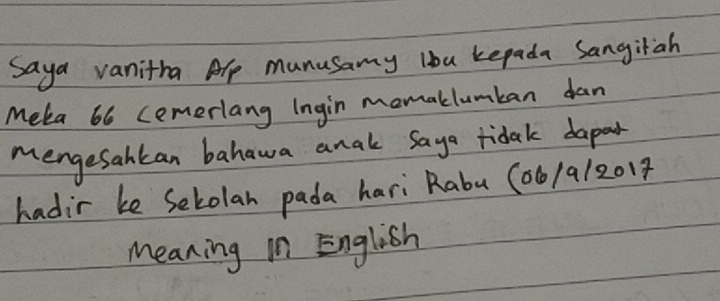 Saya vanitha A/p Munusamy Ibu kepada Sangitah
Meka 66 cemerlang Ingin memaklumkan dan
mengesahkan bahawa anak saya tidak dapat
hadir ke Sekolah pada hari Rabu (06/9/2017
Meaning in English